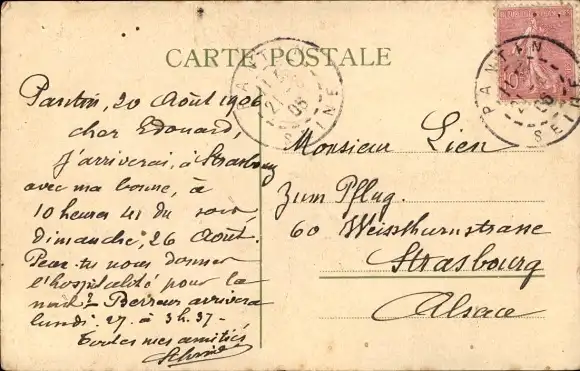 CARTE POSTALE
PANTIN
SEINE
PANTIN
SEINE
Pantin, 20 Août 1906
cher Edouard,
J'arriverai, à Strasbourg
avec ma bonne, à
10 heures 41 du soir,
dimanche, 26 Août.
Peux-tu nous donner
l'hospitalité pour la
nuit? arrivera
lundi 27. à 3 h. 37-
Toutes mes amitiés
Monsieur Lien
Zum Pflug.
60 Weissthurmstrasse
Strasbourg
Alsace